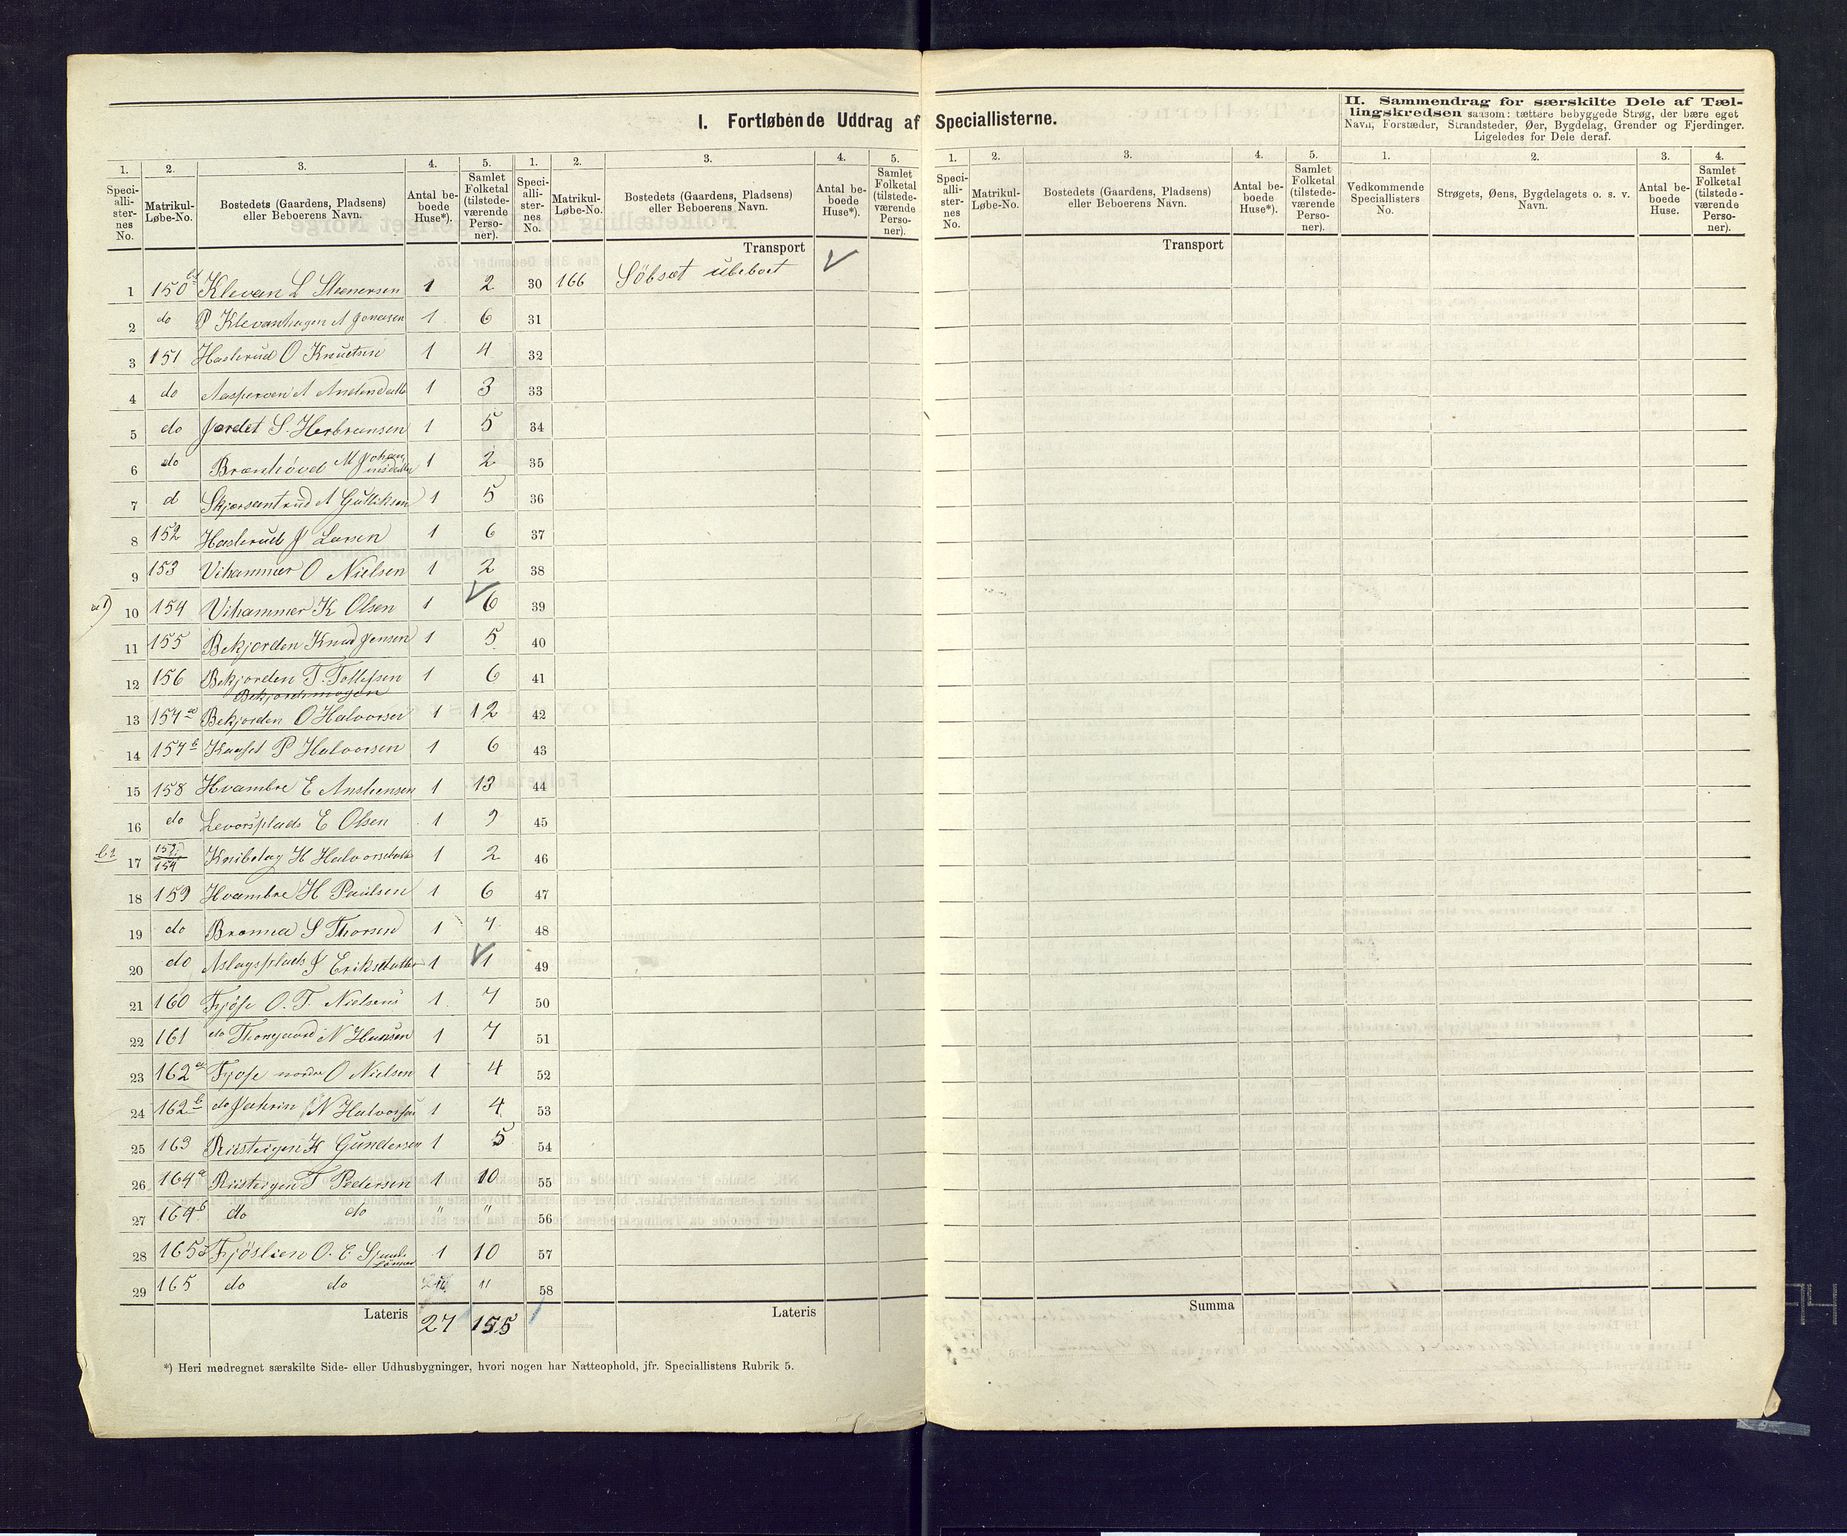 I. Fortløbende Uddrag af Speciallisterne.
II. Sammendrag for særskilte Dele af Tællingskredsen saasom: tættere bebyggede Strøg, der bære eget Navn, Forstæder, Strandsteder, Øer, Bygdelag, Grender og Fjerdinger. Ligeledes for Dele deraf.
1. 2. 3. 4. 5. 1. 2. 3. 4. 5. 1. 2. 3. 4. 5. 1. 2. 3. 4.
Speciallisternes No. Matrikul-Løbe-No. Bostedets (Gaardens, Pladsens) eller Beboerens Navn. Antal beboede Huse*). Samlet Folketal (tilstedeværende Personer).
Speciallisternes No. Matrikul-Løbe-No. Bostedets (Gaardens, Pladsens) eller Beboerens Navn. Antal beboede Huse*). Samlet Folketal (tilstedeværende Personer).
Speciallisternes No. Matrikul-Løbe-No. Bostedets (Gaardens, Pladsens) eller Beboerens Navn. Antal beboede Huse*). Samlet Folketal (tilstedeværende Personer).
Vedkommende Speciallisters No. Strøgets, Øens, Bygdelagets o. s. v. Navn. Antal beboede Huse. Samlet Folketal (tilstedeværende Personer).
Transport Transport
1 150 Klevan L Steenersen 1 2 30 166 Söbsæt ubeboet
2 do P Klevanhagen A Jonasen 1 6 31
3 151 Haslerud O Knutsen 1 4 32
4 do A 1 3 33
5 do Jordet S. Herbransen 1 5 34
6 do Brænhövd M Johannisdatter 1 2 35
7 d Skjærsantrud A Gulliksen 1 5 36
8 152 Haslerud J Larsen 1 6 37
9 153 Vihammer O Nielsen 1 2 38
10 154 Vihammer K Olsen 1 6 39
11 155 Bekjorden Knud Jensen 1 5 40
12 156 Bekjorden T. Tollefsen 1 6 41
13 157a Bekjorden O Halvorsen 1 12 42
14 157b P Halvorsen 1 6 43
15 158 Hvambre E Anstensen 1 13 44
16 do Levorsplads E Olsen 1 9 45
17 154 Knibelag H Halvorsdatter 1 2 46
18 159 Hvambre H Paulsen 1 6 47
19 do S Thorsen 1 7 48
20 do Aslagsplads J Eriksdatter 1 1 49
21 160 Fjöse O. T. Nielsens 1 7 50
22 161 do Thorsgaard N Hansen 1 7 51
23 162a Fjöse nordre O Nielsen 1 4 52
24 162b do N Halvorsen 1 4 53
25 163 Rusteigen K Gundersen 1 5 54
26 164a Rusteigen T Pedersen 1 10 55
27 164b do do " " 56
28 165 Fjöslien O. E. 1 10 57
29 165 do do " 58
Lateris 27 155 Lateris Summa
*) Heri medregnet særskilte Side- eller Udhusbygninger, hvori nogen har Natteophold, jfr. Speciallistens Rubrik 5.